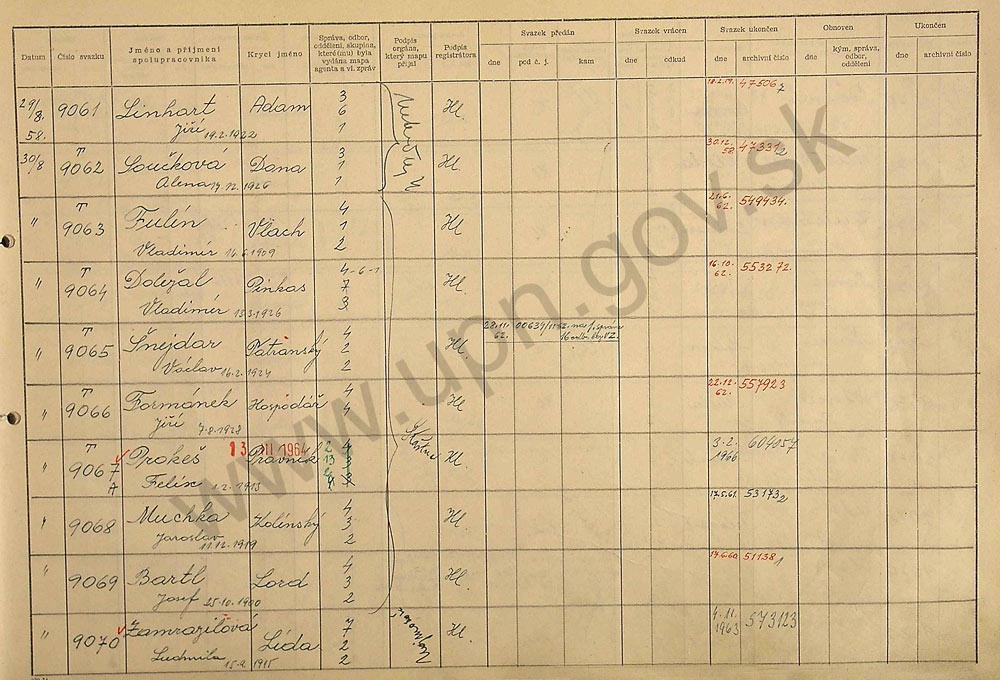 Datum Číslo svazku Jméno a příjmení spolupracovníka Krycí jméno Správa, odbor, oddělení, skupina, které(mu) byla vydána mapa agenta s vl. zpráv Podpis orgána, který mapu přijal Podpis registrátora Svazek předán Svazek vrácen Svazek ukončen Obnoven Ukončen
dne pod č. j. kam dne odkud dne archivní číslo dne kým, správa, odbor, oddělení dne archivní číslo
29/8. 58. 9061 Linhart Adam 3 6 1 Hl 47506
Jiří 19.2.1922
30/8 T 9062 Součková Dana 3 1 1 Hl 30.12. 58 47331
Alena 14.12.1926
" T 9063 Fulín Vlach 4 1 2 Hl 21.6. 62. 549434.
Vladimír 14.6.1909
" T 9064 Doležal Pinkas 4-6-1 7 3 Hl. 16.10. 62. 553272.
Vladimír 13.3.1926
" T 9065 Šnejdar Tatranský 4 2 2 Hl. 28.11. 62.
Václav 16.2.1924
" T 9066 Formánek Hospodář 4 4 Hl 22.12. 62. 557923
Jiří 7.8.1928
" T 9067 Prokeš 13 III 1964 Právník Hl. 3.2. 1966 607057
A Felix 1.2.1913
" 9068 Muchka Kolínský 4 3 2 Hl 17.5.61. 53173
Jaroslav 11.12.1919
" 9069 Bartl Lord 4 3 2 Hl 17.6.60 51138
Josef 25.10.1900
" 9070 Zamrazilová Lída 7 2 2 Hl. 4.11. 1963 573123
Ludmila 15.9.1915
www.upn.gov.sk